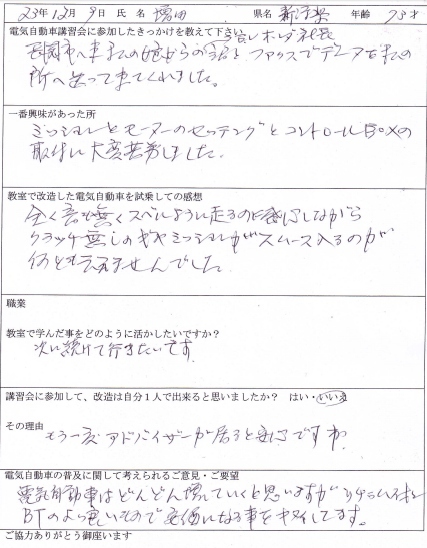 23年12月9日 氏名 増田 県名 新潟県 年齢 73才
電気自動車講習会に参加したきっかけを教えて下さい
長岡市へ 車 私の
所へ送って来てくれました。
一番興味があった所
ミッションとモーターのセッティングとコントロールBOXの
取付に大変苦労しました。
教室で改造した電気自動車を試乗しての感想
全く音も無くスベルように走るのに感心しながら
クラッチ無しのギヤミッションがスムース入るのが
何とも云えませんでした
職業
教室で学んだ事をどのように活かしたいですか？
次に続けて行きたいです
講習会に参加して、改造は自分1人で出来ると思いましたか？ はい・いいえ
その理由
もう一度アドバイザーが居ると安心ですか
電気自動車の普及に関して考えられるご意見・ご要望
電気自動車はどんどん増えていくと思いますが
BTのより良いもので安価になる事を
ご協力ありがとう御座います